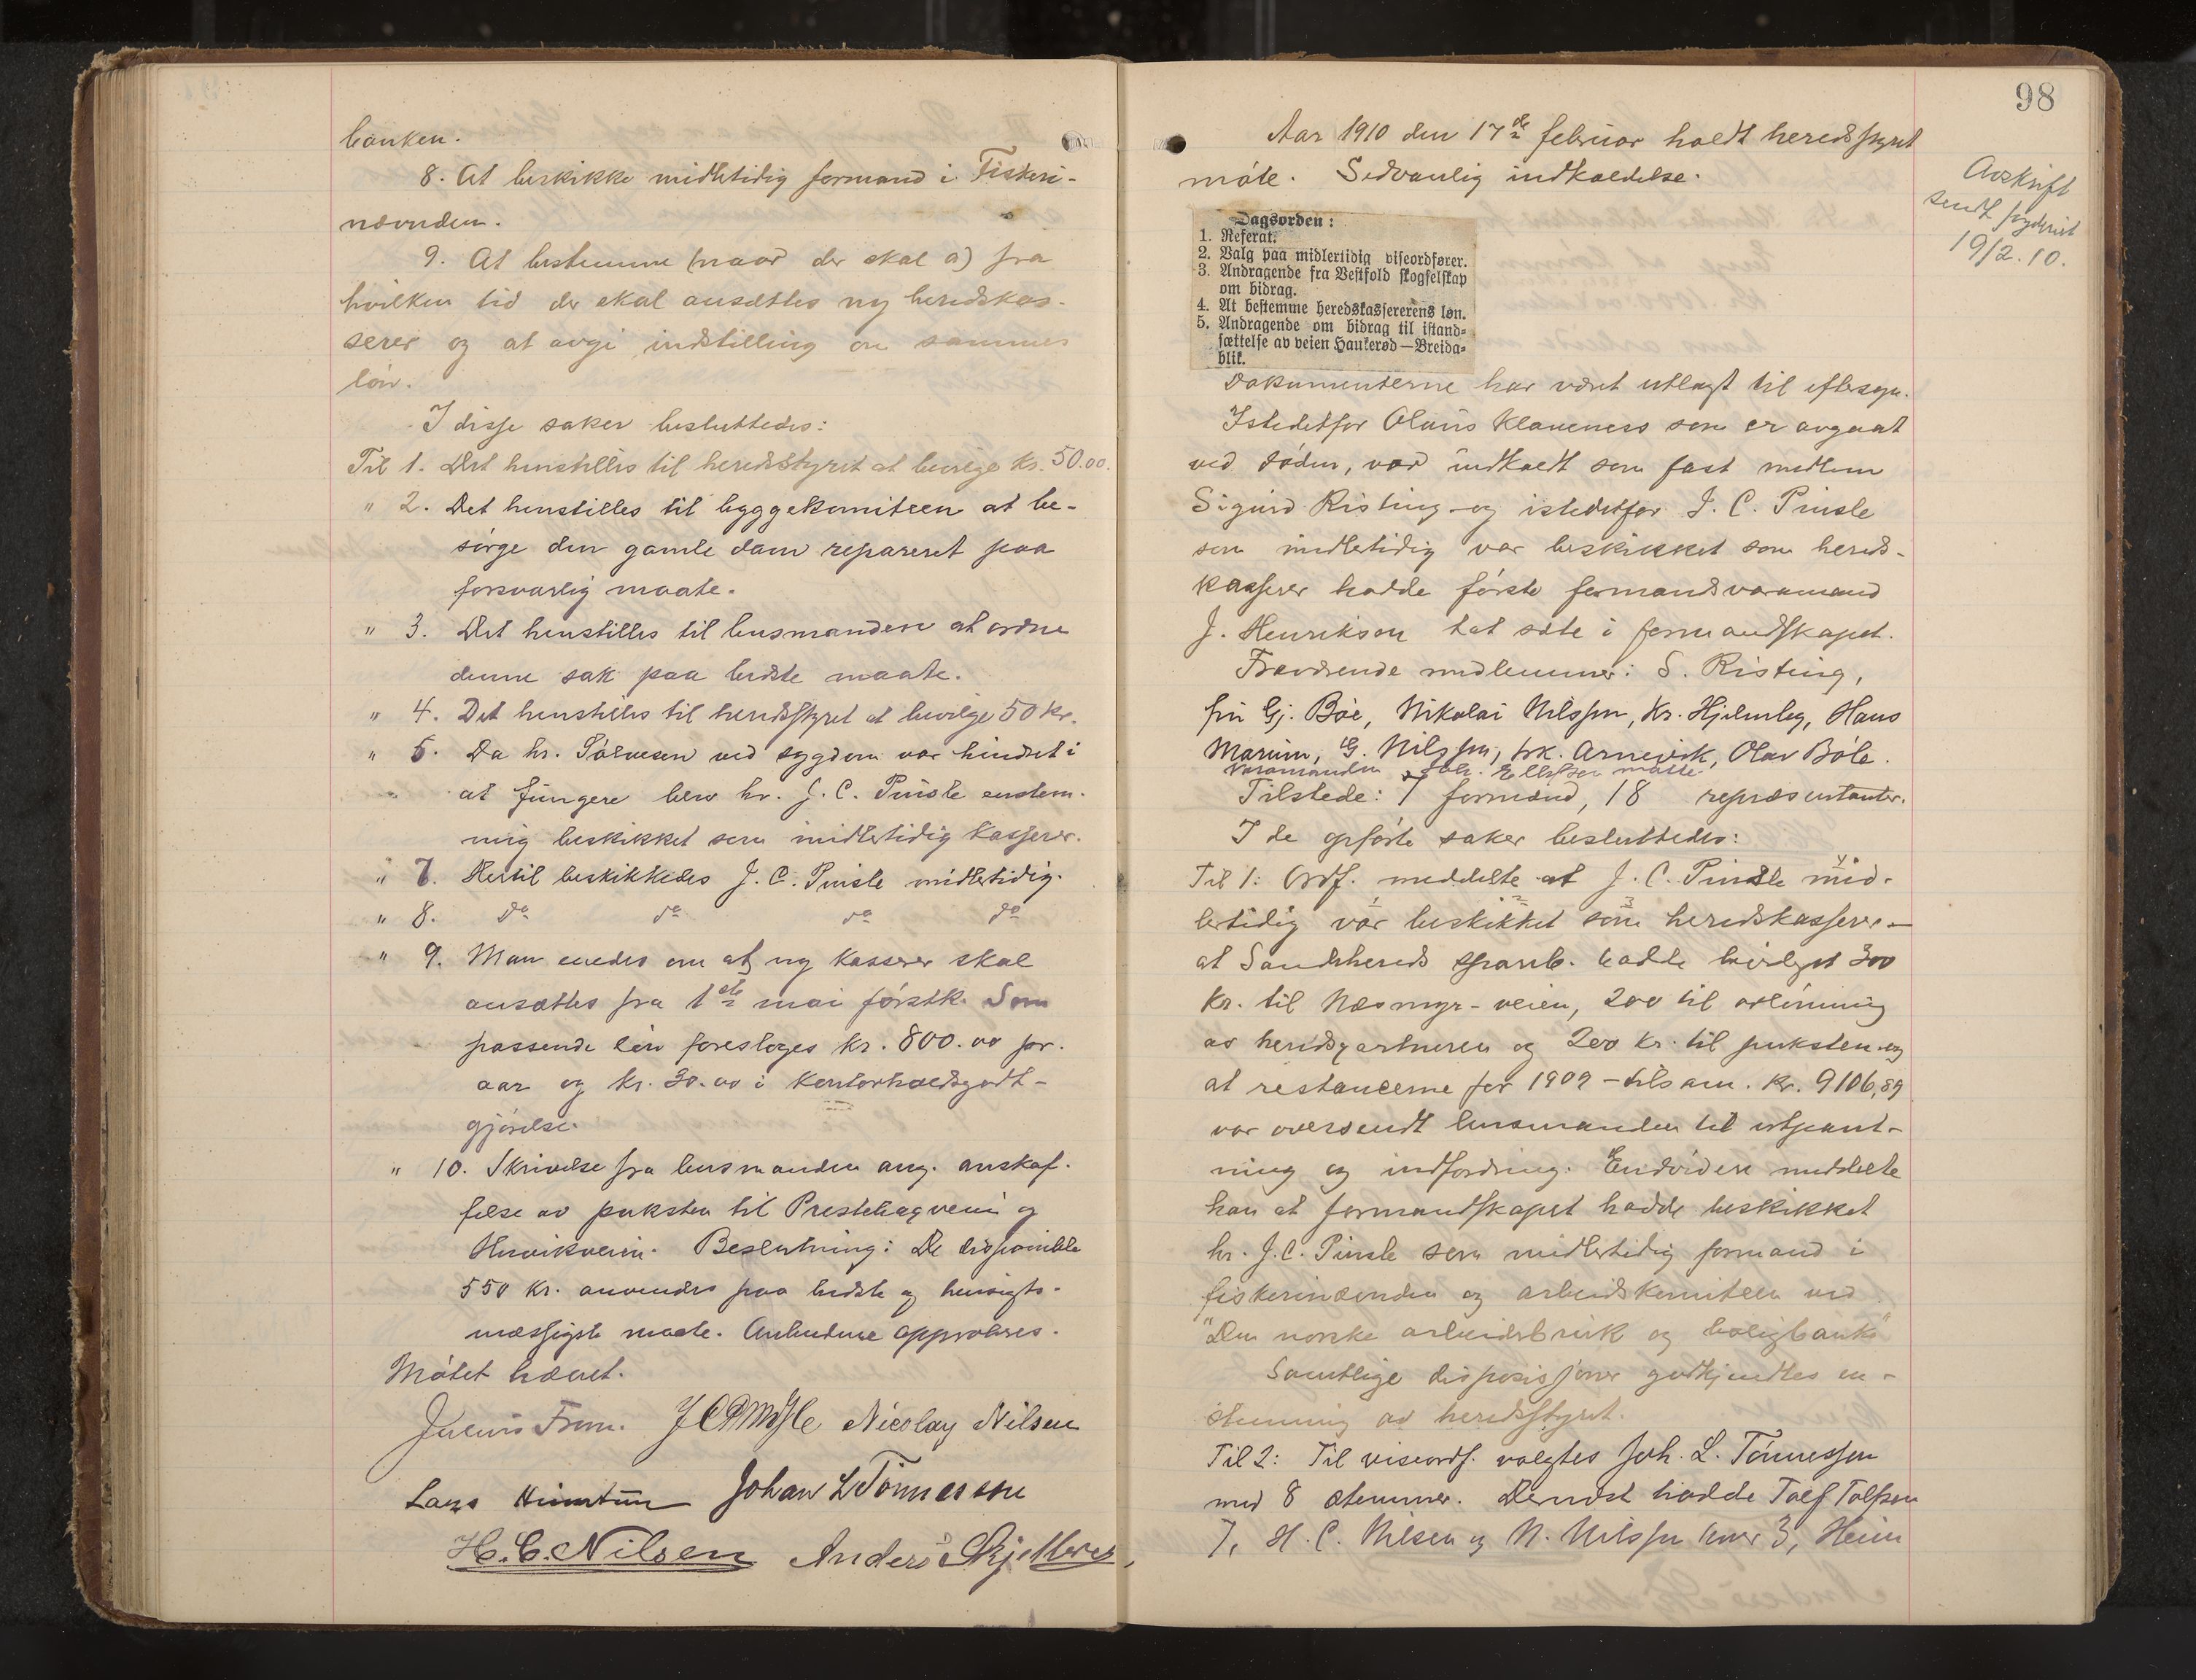 banken.
8. At beskikke midletidig formand i Fiskeri-
nævnden.
9. At bestemme (naar der skal a) fra
hvilken tid der skal ansættes ny heredskas-
serer og at avgi indstilling om sammes
løn.
I disse saker besluttedes:
Til 1. Det henstilles til heredsstyret at bevilge kr. 50.00.
" 2. Det henstilles til byggekomiteen at be-
sørge den gamle dam reparert paa
forsvarlig maate.
" 3. Det henstilles til lensmanden at ordne
denne sak paa bedste maate.
" 4. Det henstilles til heredsstyret at bevilge 50 kr.
" 5. Da hr. Sørensen ved sygdom var hindret i
at fungere blev hr. J. C. Pindsle enstem-
mig beskikket som midlertidig kasserer.
" 7. Hertil beskikkedes J. C. Pindsle midlertidig.
" 8. do do do do
" 9. Man enedes om at ny kasserer skal
ansættes fra 1ste mai førstk. Som
passende løn foresloges kr. 800.00 pr.
aar og kr. 30.00 i kontorholdsgodt-
gjørelse.
" 10. Skrivelse fra lensmanden ang. anskaf-
felse av puksten til Prestehagveien og
Husvikveien. Beslutning: De disponible
550 kr. anvendes paa bedste og hensigts-
mæssigste maate. Anbudene approberes.
Møtet hævet.
J C Pindsle Nicolay Nilsen
Lars Johan L Tönnessen
H. C. Nilsen Anders Skjelbred
98
Aar 1910 den 17de februar holdt heredsstyret
møte. Sedvanlig indkaldelse.
Avskrift
sendt fogderiet
19/2.10.
Dagsorden:
1. Referat.
2. Valg paa midlertidig viseordfører.
3. Andragende fra Vestfold skogselskap
om bidrag.
4. At bestemme heredskassererens løn.
5. Andragende om bidrag til istand-
sættelse av veien Haukerød—Breida-
blik.
Dokumenterne har været utlagt til eftersyn.
Istedetfor Olaus Klaveness som er avgaat
ved døden, var indkaldt som fast medlem
Sigurd Risting og istedetfor J. C. Pindsle
som midlertidig var beskikket som hereds-
kasserer hadde første formandsvaramand
J. Henriksen tat sæte i formandskapet.
Fraværende medlemmer: S. Risting,
fru Gj. Bøe, Nikolai Nilssen, Kr. Hjelmleg, Hans
Marum, G. Nilssen, frk. Arnevik, Olav Bøle.
Varamanden Joh. Ellefsen møtte
Tilstede: 7 formænd, 18 repræsentanter.
I de opførte saker besluttedes:
Til 1: Ordf. meddelte at J. C. Pindsle mid-
lertidig var beskikket som heredskasserer —
at Sandeherreds spareb. hadde bevilget 300
kr. til Næsmyr-veien, 200 til avlønning
av heredsgartneren og 200 kr. til puksten og
at restancerne for 1909 – tilsam. kr. 9106,89
var oversendt lensmanden til utpant-
ning og indfordring. Endvidere meddelte
han at formandskapet hadde beskikket
hr. J. C. Pindsle som midlertidig formand i
fiskerinævnden og arbeidskomiteen ved
"Den norske arbeidsbruk og boligbank"
Samtlige disposisjoner godkjendtes en-
stemmig av heredsstyret.
Til 2: Til viseordf. valgtes Joh. L. Tønnessen
med 8 stemmer. Dernæst hadde Tolf Tolfsen
7, H. C. Nilsen og N. Nilssen hver 3, Heim